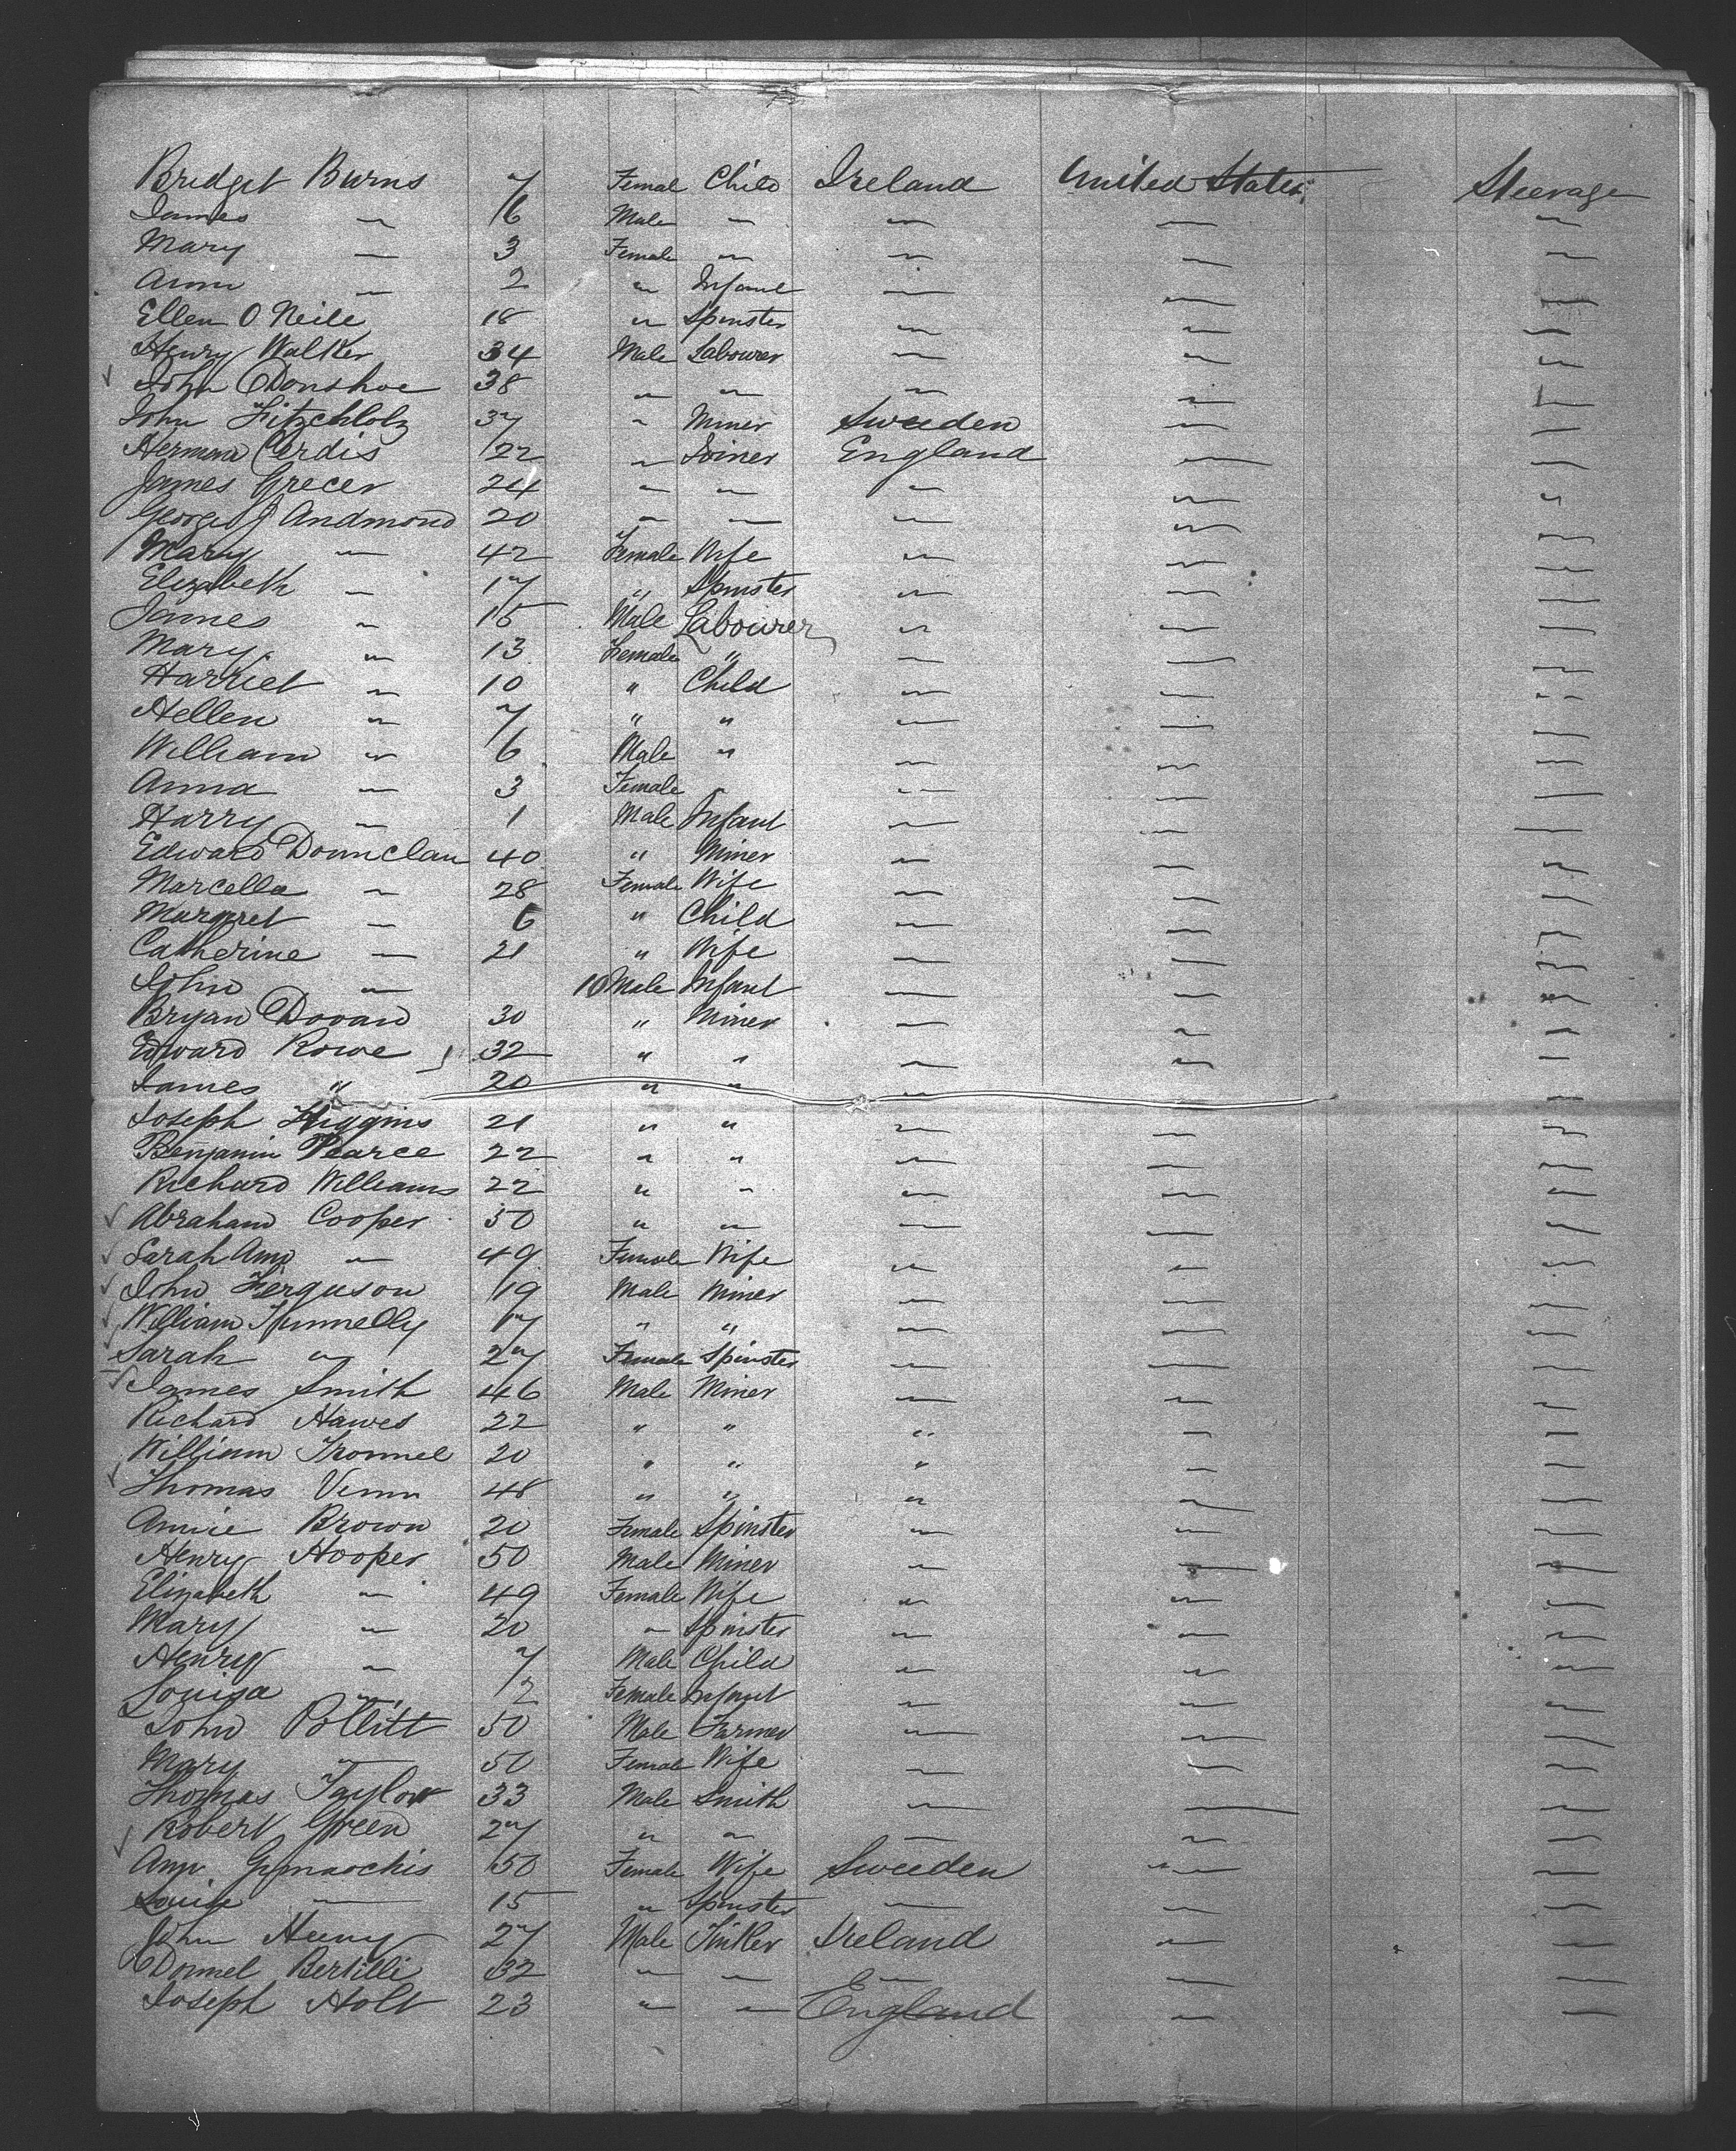 Bridget Burns 7 Femal Child Ireland United States Steerage
James " 6 Male " " " "
Mary " 3 Female " " " "
Ann " 2 " Infant " " "
Ellen O Neile 18 " Spinster " " "
Henry Walker 34 Male Labourer " " "
John Donohoe 38 " " " " "
John Fitzchlolz 37 " Miner Sweeden " "
Herman Cerdis 22 " Joiner England " "
James Grecer 24 " " " " "
George J Andmond 20 " " " " "
Mary " 42 Female Wife " " "
Elizabeth " 17 " Spinster " " "
James " 15 Male Labourer " " "
Mary " 13 Female " " " "
Harriet " 10 " Child " " "
Hellen " 7 " " " " "
William " 6 Male " " " "
Anna " 3 Female " " " "
Harry " 1 Male Infant " " "
Edward Donnclan 40 " Miner " " "
Marcella " 28 Female Wife " " "
Margret " 6 " Child " " "
Catherine " 21 " Wife " " "
John " 10 Male Infant " " "
Bryan Doran 30 " Miner " " "
Edward Rowe 32 " " " " "
James " 20 " " " " "
Joseph Higgins 21 " " " " "
Benjamin Pearce 22 " " " " "
Richard Williams 22 " " " " "
Abraham Cooper 50 " " " " "
Sarah Ann " 49 Female Wife " " "
John Ferguson 19 Male Miner " " "
William Kunnelly 17 " " " " "
Sarah " 27 Female Spinster " " "
James Smith 46 Male Miner " " "
Richard Hawes 22 " " " " "
William Tronnel 20 " " " " "
Thomas Venn 48 " " " " "
Annie Brown 20 Female Spinster " " "
Henry Hooper 50 Male Miner " " "
Elizabeth " 49 Female Wife " " "
Mary " 20 " Spinster " " "
Henry " 7 Male Child " " "
Louisa " 2 Female Infant " " "
John Pollitt 50 Male Farmer " " "
Mary " 50 Female Wife " " "
Thomas Taylor 33 Male Smith " " "
Robert Green 27 " " " " "
Ann 50 Female Wife Sweeden " "
Louise " 15 " Spinster " " "
John Heeny 27 Male Tinker Ireland " "
Donnel Bertilli 32 " " " " "
Joseph Holt 23 " " England " "